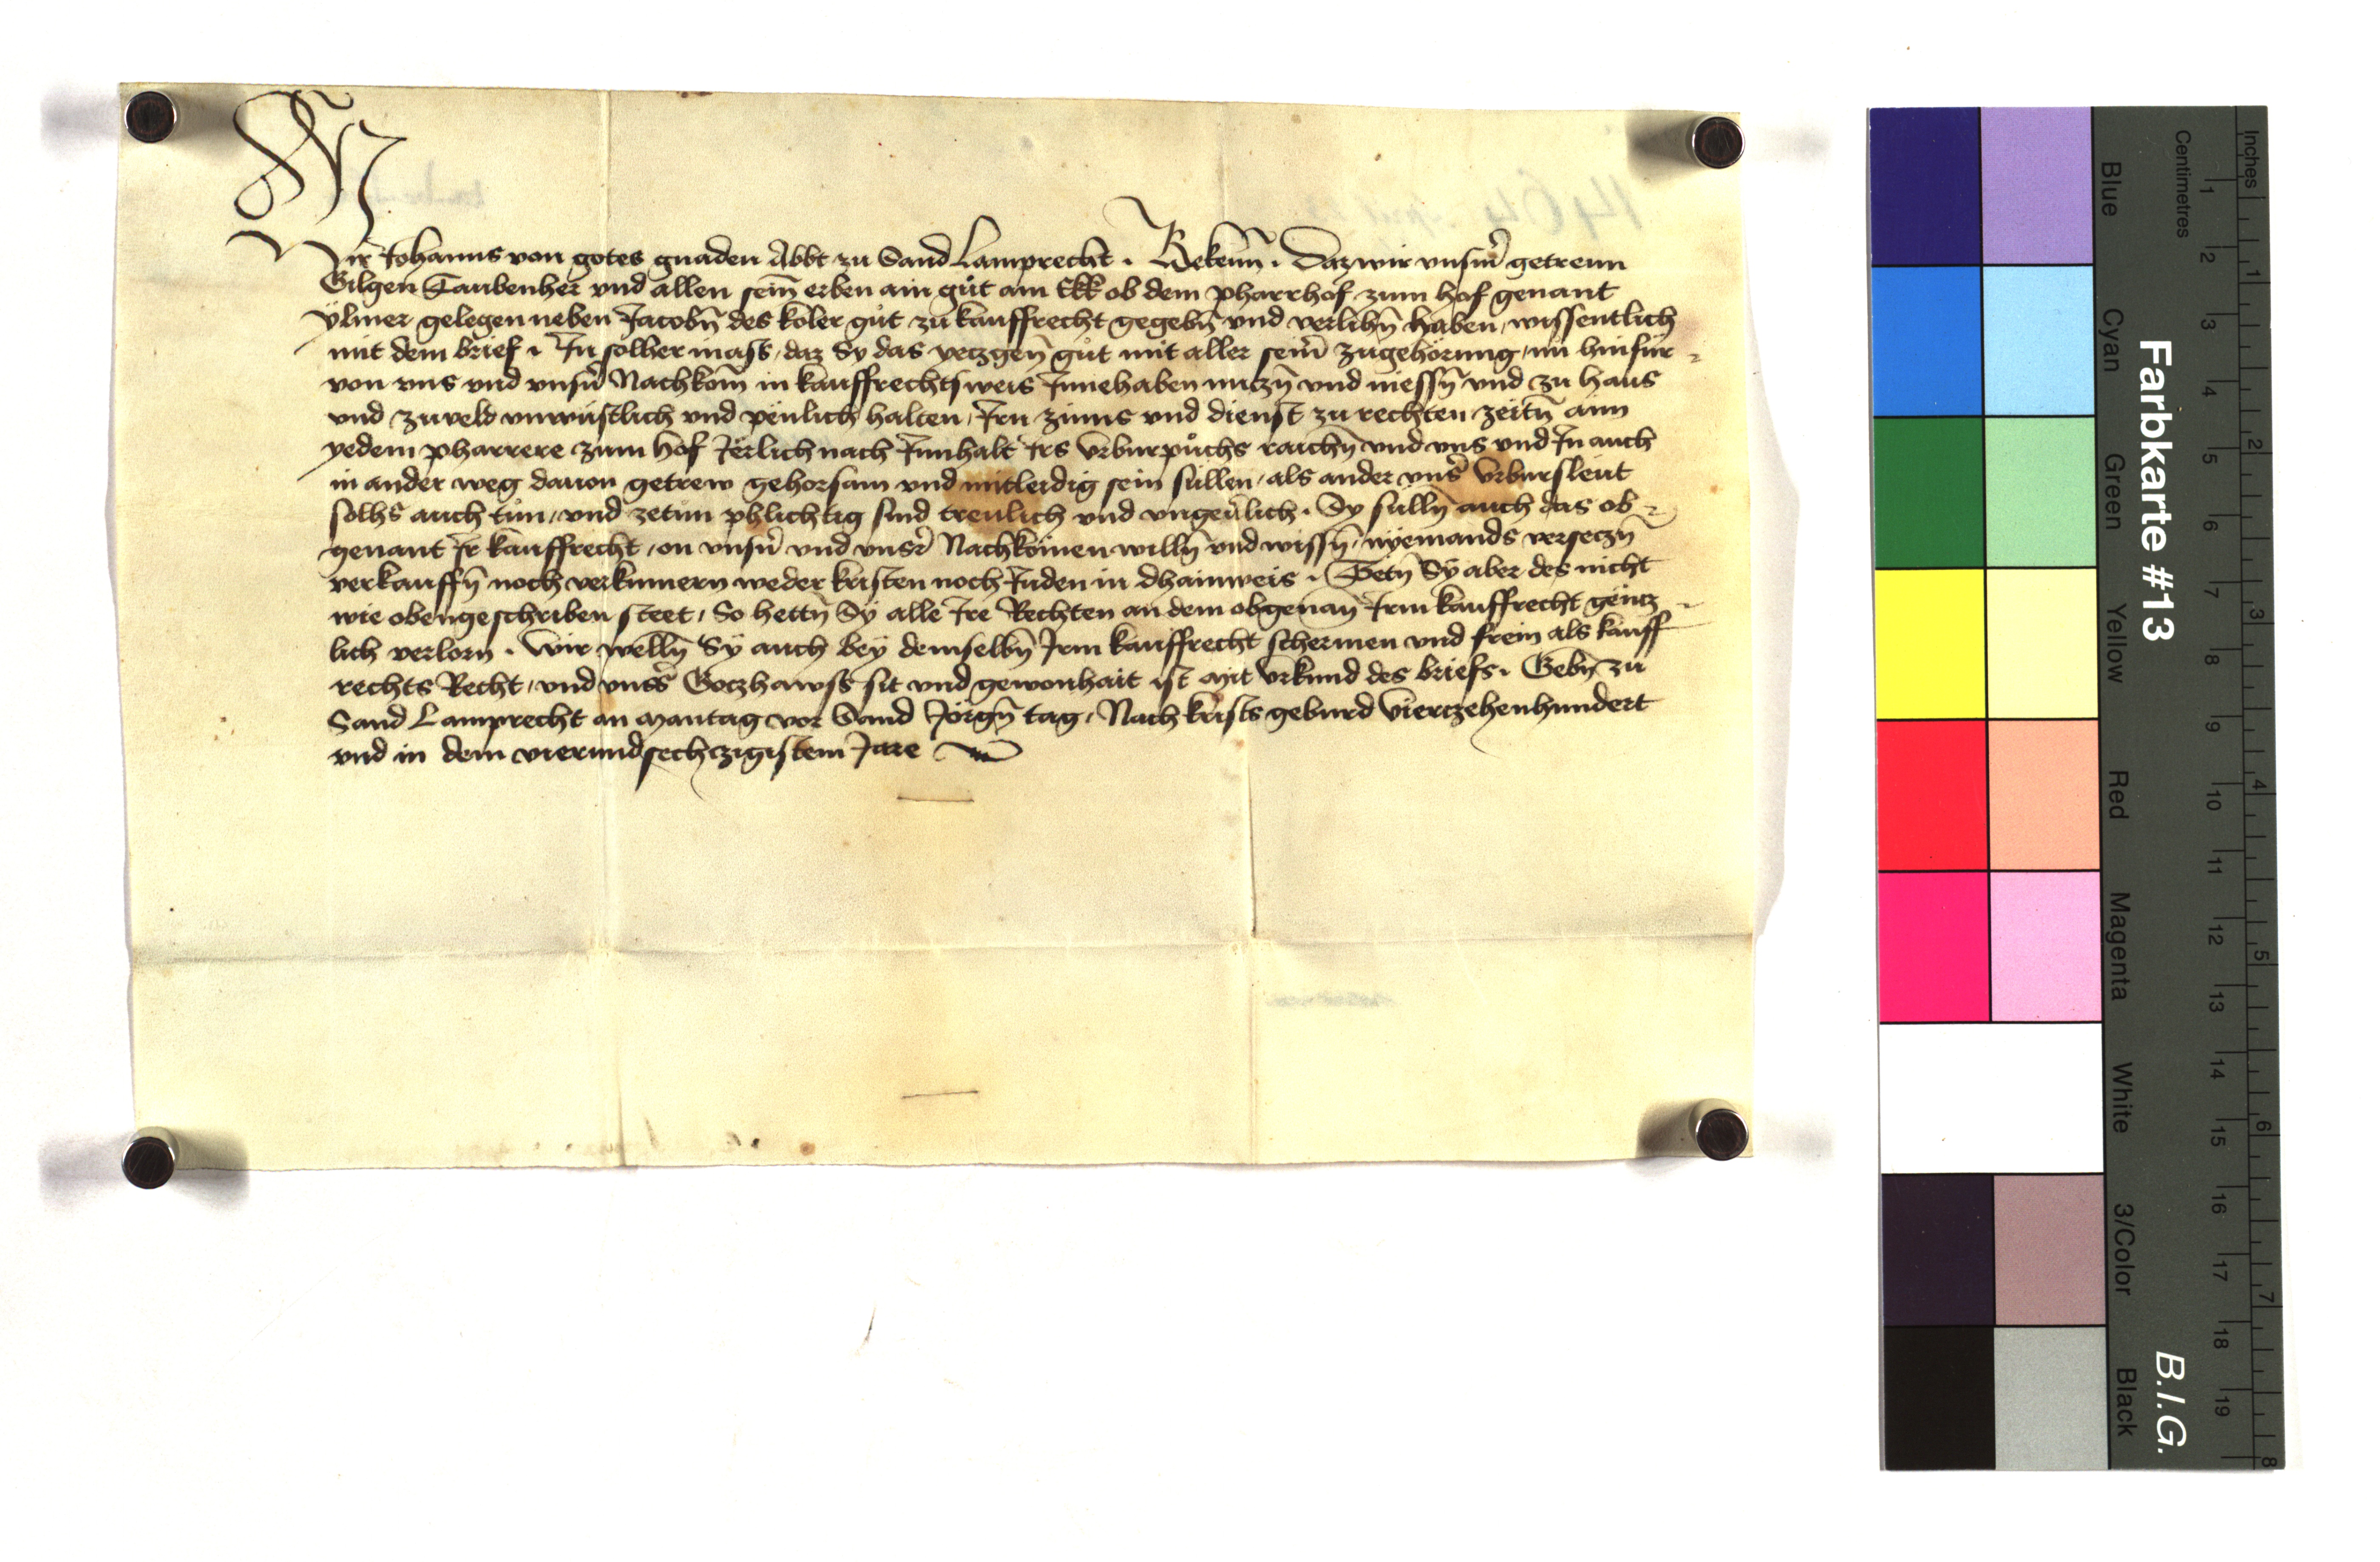 Wir Johanns von gotes gnaden Abbt zu Sand Lamprecht . Bekenn̄ . Daz wir vnsm̄ getrenn
Gilgen Taubenher vnd allen sein̄ erben ain gůt am Ekk ob dem pharrhof zum hof genant
Vlmer gelegen neben Jacobn̄ des koler gůt zu kauffrecht gegebn̄ vnd verlihn̄ haben wissentlich
mit dem brief . In solher mass daz Sy das yetzgen̄ gůt mit aller seiner zugehörung nu hinfür
von vns vnd vnsn̄ Nachkom̄ in kauffrechtsweis Innehaben nutzn̄ vnd niessn̄ vnd zu haus
vnd zuveld vnwüstlich vnd pëulich halten Irn zinns vnd dienst zu rechten zeitn̄ aim
yedem pharrere zum hof Jërlich nach Innhalt Irs Vrburpůchs raichn̄ vnd vns vnd In auch
in ander weg dauon getrew gehorsam vnd mitleidig sein süllen als ander vnsˀ Vrbursleut
solhs auch tůn vnd zetun phlichtig sind treulich vnd vngeuˀlich . Sy sulln̄ auch das ob
genant Ir kauffrecht on vnsn̄ vnd vnsrˀ Nachkomen willn̄ vnd wissn̄ nyemands versetzn̄
verkauffn̄ noch verkumern weder kristen noch Juden in dhainweis . Tetn̄ Sÿ aber des nicht
wie obengeschriben steet So hettn̄ Sÿ alle Ire Rechten an dem obgenan̄ Irm kauffrecht gëntz
lich verlorn . Wir welln̄ Sÿ auch bey demselbn̄ Irm kauffrecht schermen vnd frein als kauff
rechts Recht vnd vnsˀs Gotzhawss sit vnd gewonhait ist Mit Vrkund des briefs . Gebn̄ zu
Sand Lamprecht an Mantag vor Sand Jörgn̄ tag Nach krists geburd Vierczehenhundert
vnd in dem vierundsechczigistem Jare
Farbkarte #13
B.I.G.
Blue
Cyan
Green
Yellow
Red
Magenta
White
3/Color
Black
Centimetres
1 2 3 4 5 6 7 8 9 10 11 12 13 14 15 16 17 18 19
Inches
1 2 3 4 5 6 7 8